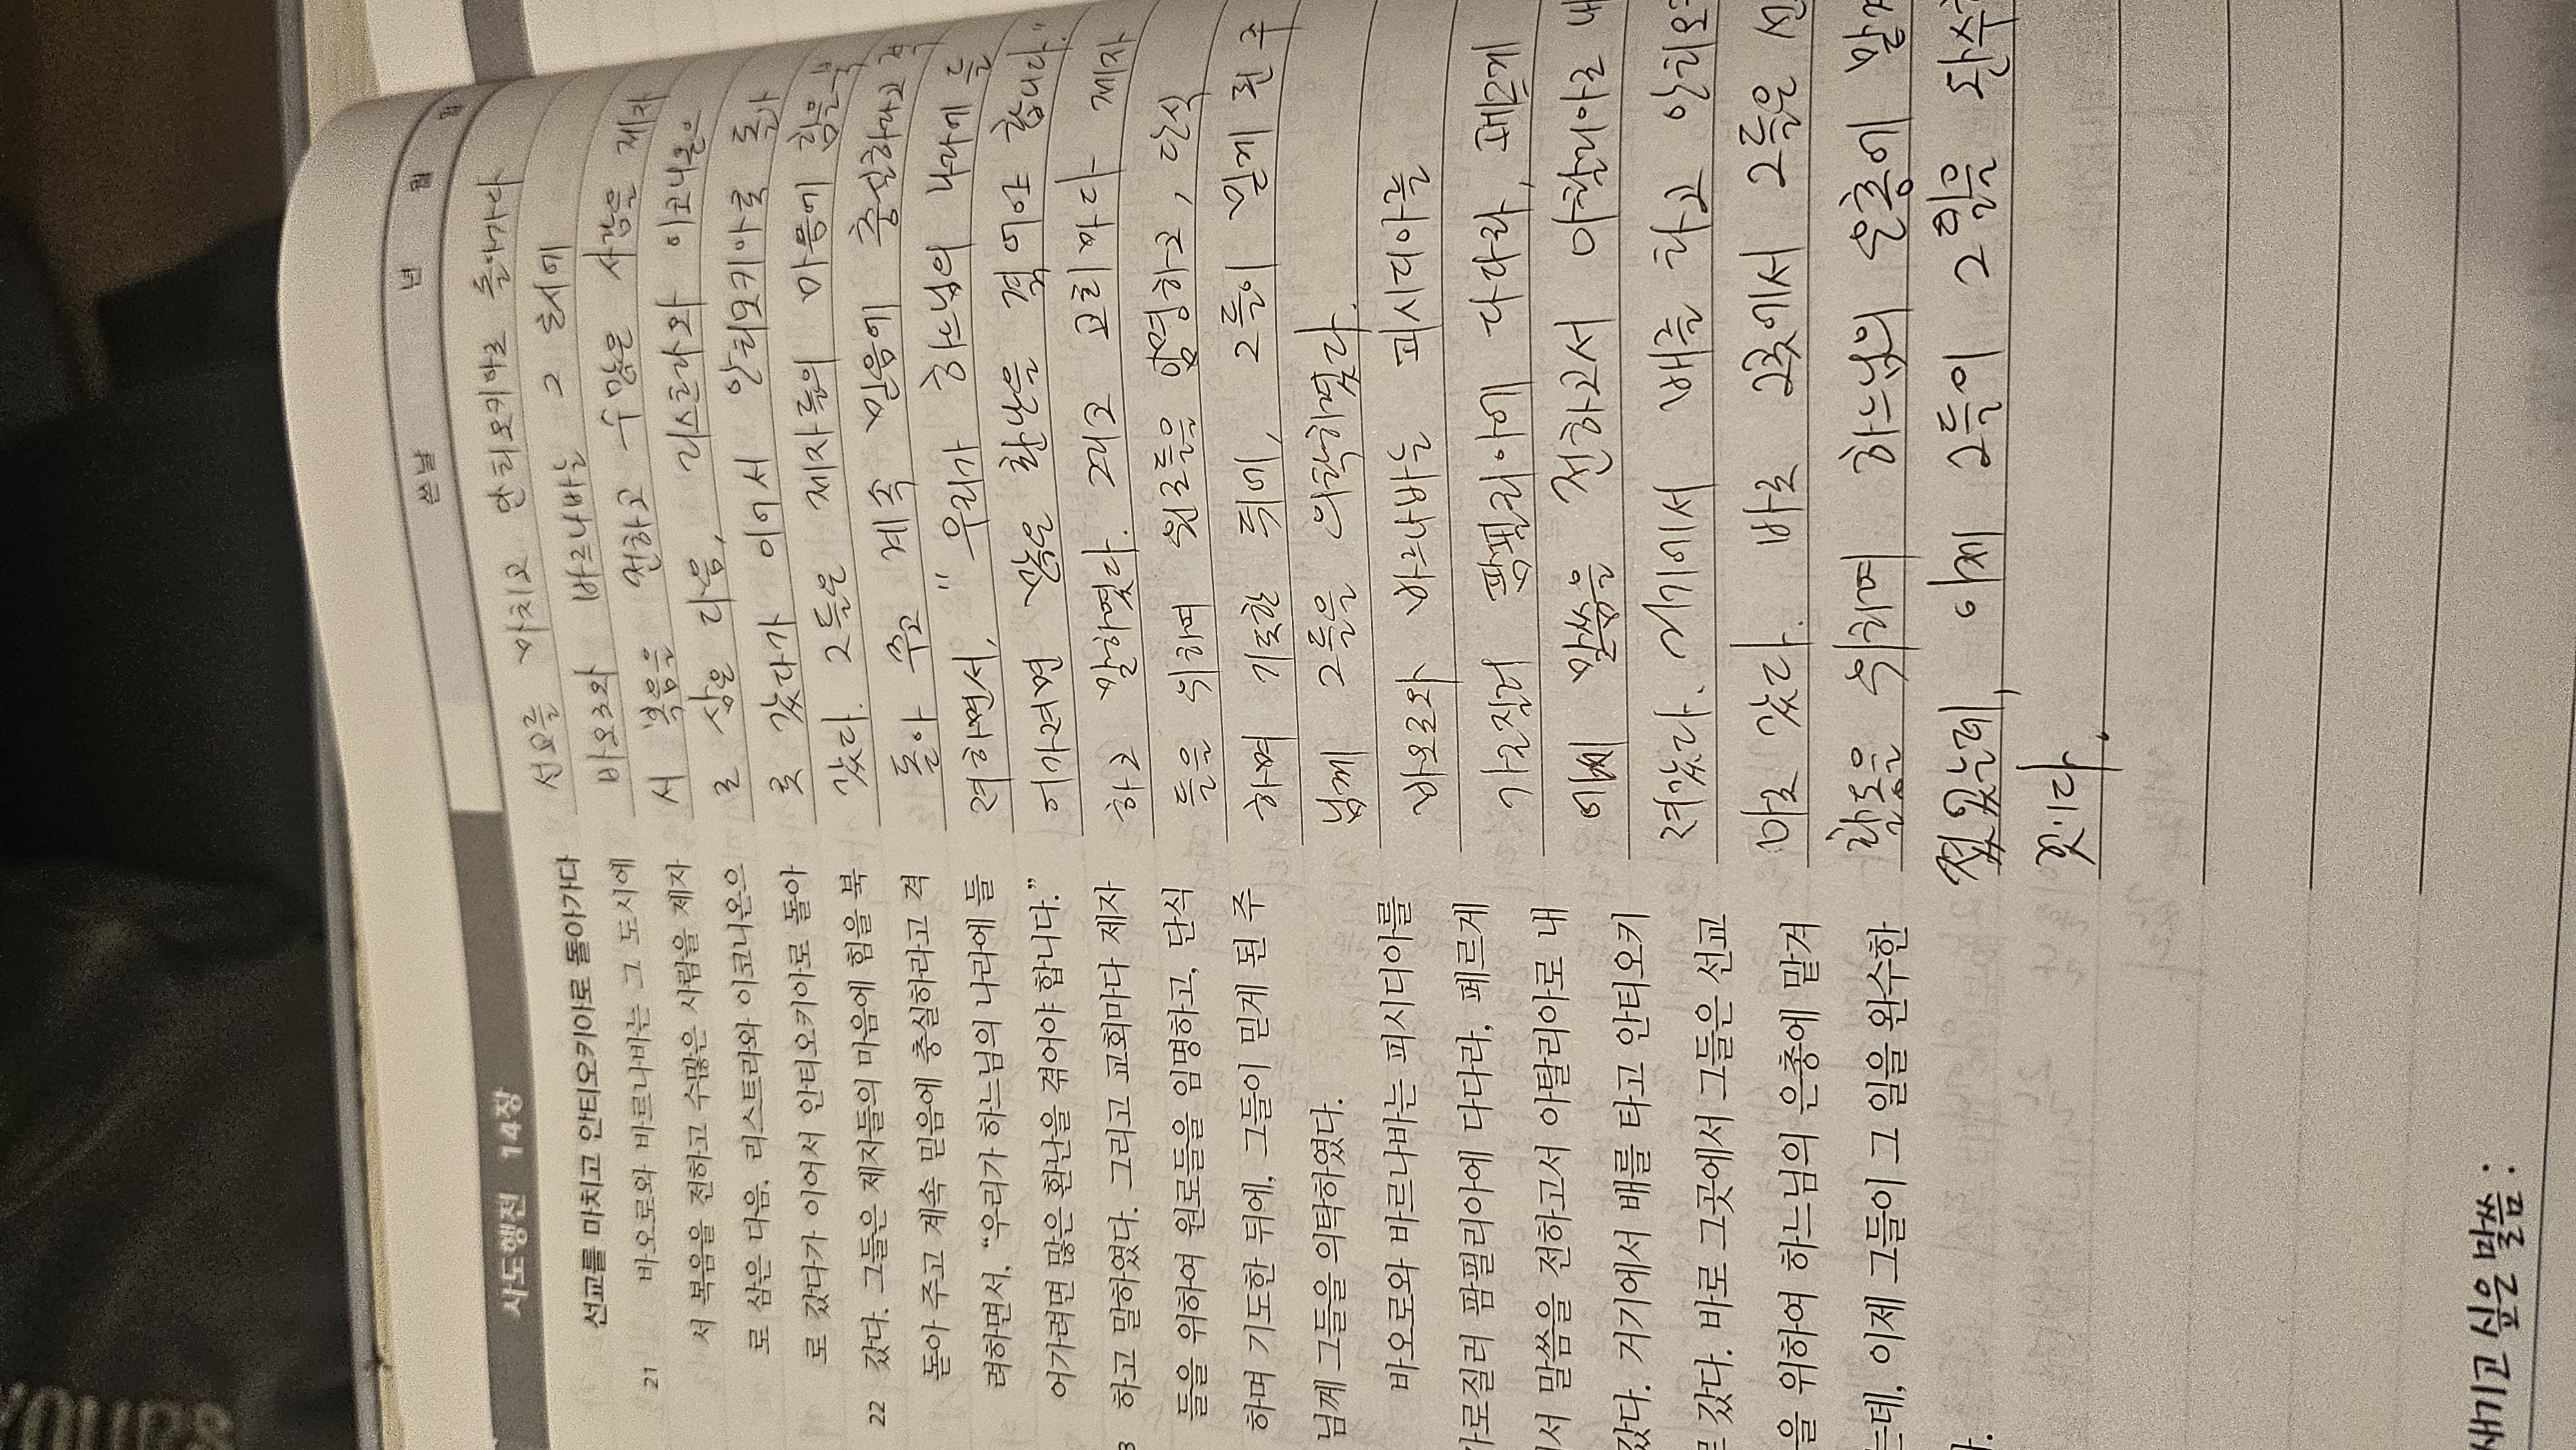 사도행전 14장
선교를 마치고 안티오키아로 돌아가다
21 바오로와 바르나바는 그 도시에
서 복음을 전하고 수많은 사람을 제자
로 삼은 다음, 리스트라와 이코니온으
로 갔다가 이어서 안티오키아로 돌아
22 갔다. 그들은 제자들의 마음에 힘을 북
돋아 주고 계속 믿음에 충실하라고 격
려하면서, “우리가 하느님의 나라에 들
어가려면 많은 환난을 겪어야 합니다.”
3 하고 말하였다. 그리고 교회마다 제자
들을 위하여 원로들을 임명하고, 단식
하며 기도한 뒤에, 그들이 믿게 된 주
님께 그들을 의탁하였다.
바오로와 바르나바는 피시디아를
가로질러 팜필리아에 다다라, 페르게
에서 말씀을 전하고서 아탈리아로 내
갔다. 거기에서 배를 타고 안티오키
로 갔다. 바로 그곳에서 그들은 선교
을 위하여 하느님의 은총에 맡겨
는데, 이제 그들이 그 일을 완수한
다.
새기고 싶은 말씀 :
쓴날 년 월 일
선교를 마치고 안티오키아로 돌아가다
바오로와 바르나바는 그 도시에
서 복음을 전하고 수많은 사람을 제자
로 삼은 다음, 리스트라와 이코니온으
로 갔다가 이어서 안티오키아로 돌아
갔다. 그들은 제자들의 마음에 힘을 북
돋아 주고 계속 믿음에 충실하라고 격
려하면서, "우리가 하느님의 나라에 들
어가려면 많은 환난을 겪어야 합니다."
하고 말하였다. 그리고 교회마다 제자
들을 위하여 원로들을 임명하고, 단식
하며 기도한 뒤에, 그들이 믿게 된 주
님께 그들을 의탁하였다.
바오로와 바르나바는 피시디아를
가로질러 팜필리아에 다다라, 페르게
에서 말씀을 전하고서 아탈리아로 내
려갔다. 거기에서 배를 타고 안티오키
아로 갔다. 바로 그곳에서 그들은 선
활동을 위하여 하느님의 은총에 맡겨
졌었는데, 이제 그들이 그 일을 완수
것이다.